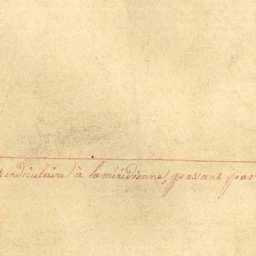 endiculaire à la méridienne, passant par